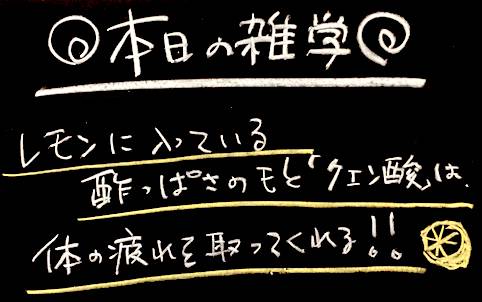 本日の雑学
レモンに入っている
酢っぱさのモと「クエン酸」は、
体の疲れを取ってくれる!!